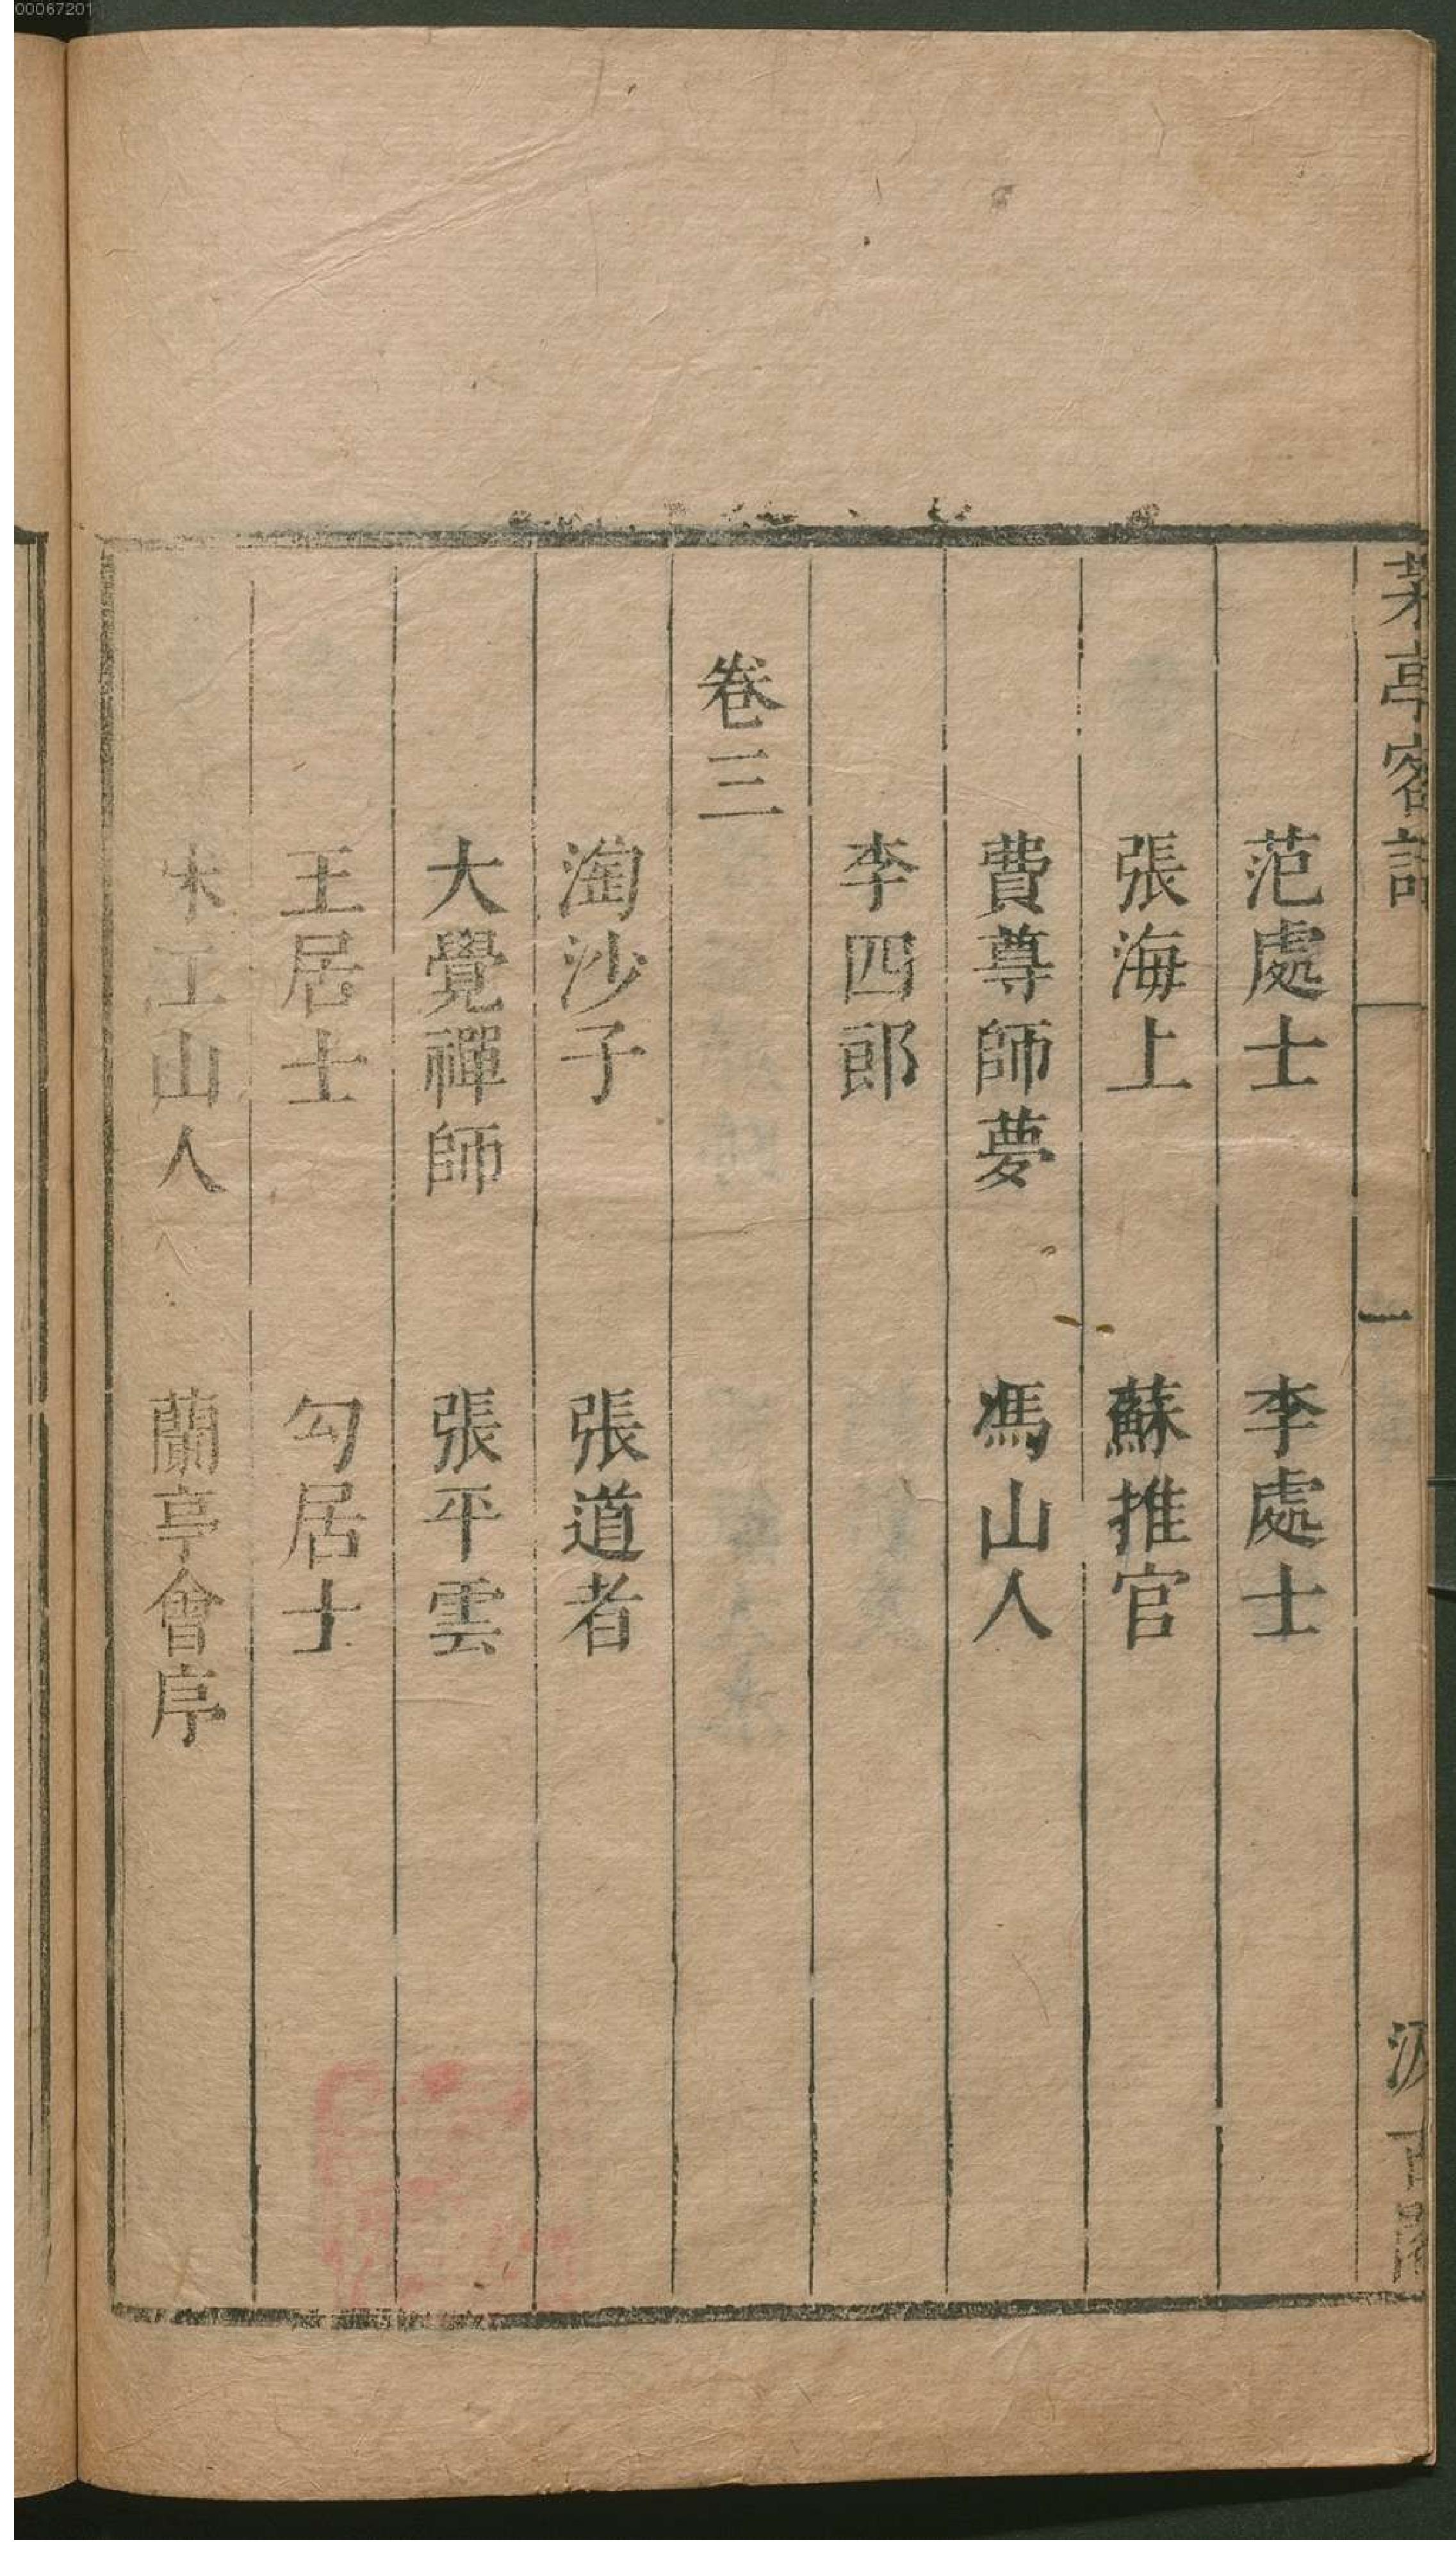 00067201
茅亭客話
一
汲古閣
范處士　李處士
張海上　蘇推官
費尊師夢　馮山人
李四郎
卷三
淘沙子　張道者
大覺禪師　張平雲
王居士　勾居士
木工山人　蘭亭會序